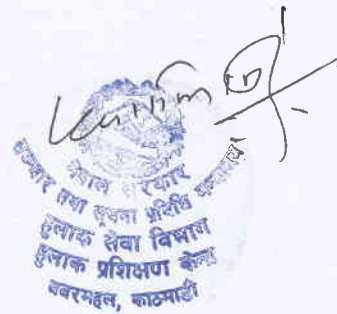 नेपाल सरकार
सञ्चार तथा सूचना प्रविधि मन्त्रालय
हुलाक सेवा विभाग
हुलाक प्रशिक्षण केन्द्र
बबरमहल, काठमाडौं